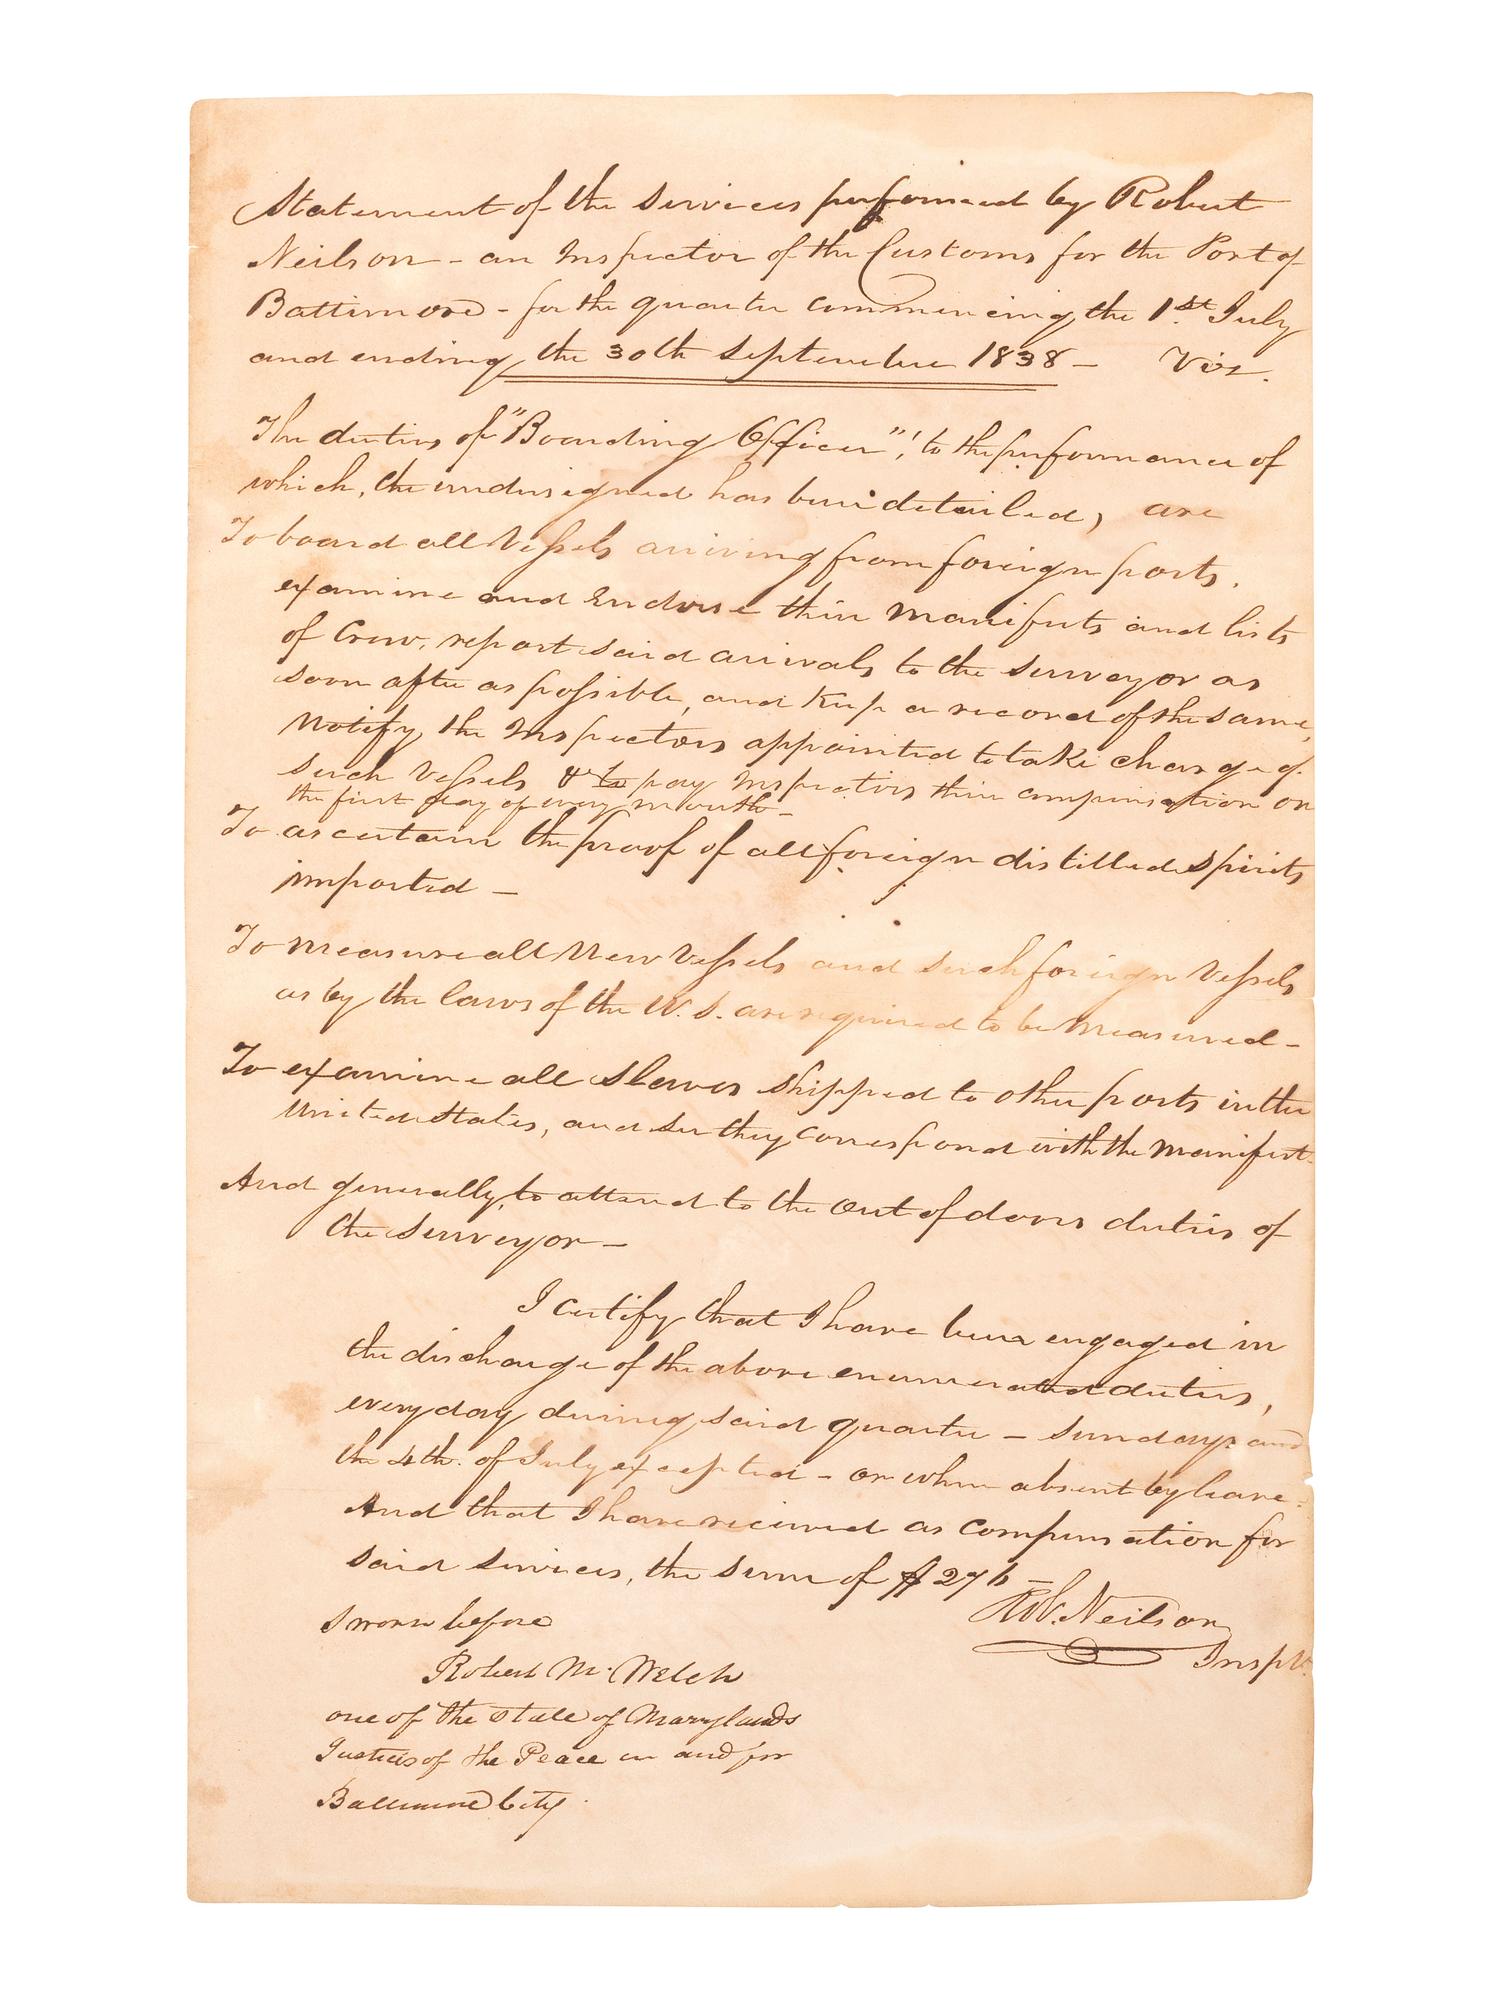 Statement of the services performed by Robert
Neilson - an Inspector of the Customs for the Port of
Baltimore - for the quarter commencing the 1st July
and ending the 30th September 1838 - Viz.
The duties of "Boarding Officer", to the performance of
which, the undersigned has been detailed, are
To board all Vessels arriving from foreign ports,
examine and Endorse their Manifests and lists
of Crew, report said arrivals to the surveyor as
soon after as possible, and Keep a record of the same,
Notify the Inspectors appointed to take charge of
such Vessels & to pay Inspectors their compensation on
the first day of every month -
To ascertain the proof of all foreign distilled spirits
imported -
To measure all New Vessels and such foreign Vessels
as by the laws of the U.S. are required to be Measured -
To examine all Slaves shipped to other ports in the
United States, and see they correspond with the Manifest -
And generally, to attend to the out of doors duties of
the Surveyor -
I certify that I have been engaged in
the discharge of the above enumerated duties,
every day during said quarter - Sundays and
the 4th. of July excepted - or when absent by leave -
And that I have received as compensation for
said services, the sum of $276 -
Rob. Neilson
Inspr.
Sworn before
Robert M. Welch
one of the State of Marylands
Justices of the Peace in and for
Baltimore City.